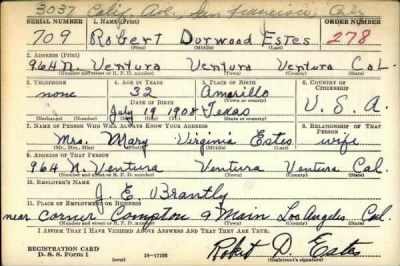 3037 Calif. Ave., San Francisco, Calif.
SERIAL NUMBER 1. NAME (Print) ORDER NUMBER
709 Robert Durwood Estes 278
(First) (Middle) (Last)
2. ADDRESS (Print)
964 N. Ventura Ventura Ventura Cal.
(Number and street or R. F. D. number) (Town) (County) (State)
3. TELEPHONE 4. AGE IN YEARS 5. PLACE OF BIRTH 6. COUNTRY OF CITIZENSHIP
none 32 Amarillo
DATE OF BIRTH (Town or county)
July 19 1908 Texas U. S. A.
(Mo.) (Day) (Yr.) (State or country)
7. NAME OF PERSON WHO WILL ALWAYS KNOW YOUR ADDRESS 8. RELATIONSHIP OF THAT PERSON
Mrs. Mary Virginia Estes wife
(Mr., Mrs., Miss) (First) (Middle) (Last)
9. ADDRESS OF THAT PERSON
964 N. Ventura Ventura Ventura Cal.
(Number and street or R. F. D. number) (Town) (County) (State)
10. EMPLOYER'S NAME
J. E. Brantly
11. PLACE OF EMPLOYMENT OR BUSINESS
near corner Compton & Main Los Angeles Cal.
(Number and street or R. F. D. number) (Town) (County) (State)
I AFFIRM THAT I HAVE VERIFIED ABOVE ANSWERS AND THAT THEY ARE TRUE.
REGISTRATION CARD
D. S. S. Form 1 16—17105 Robert D. Estes
(Registrant's signature)